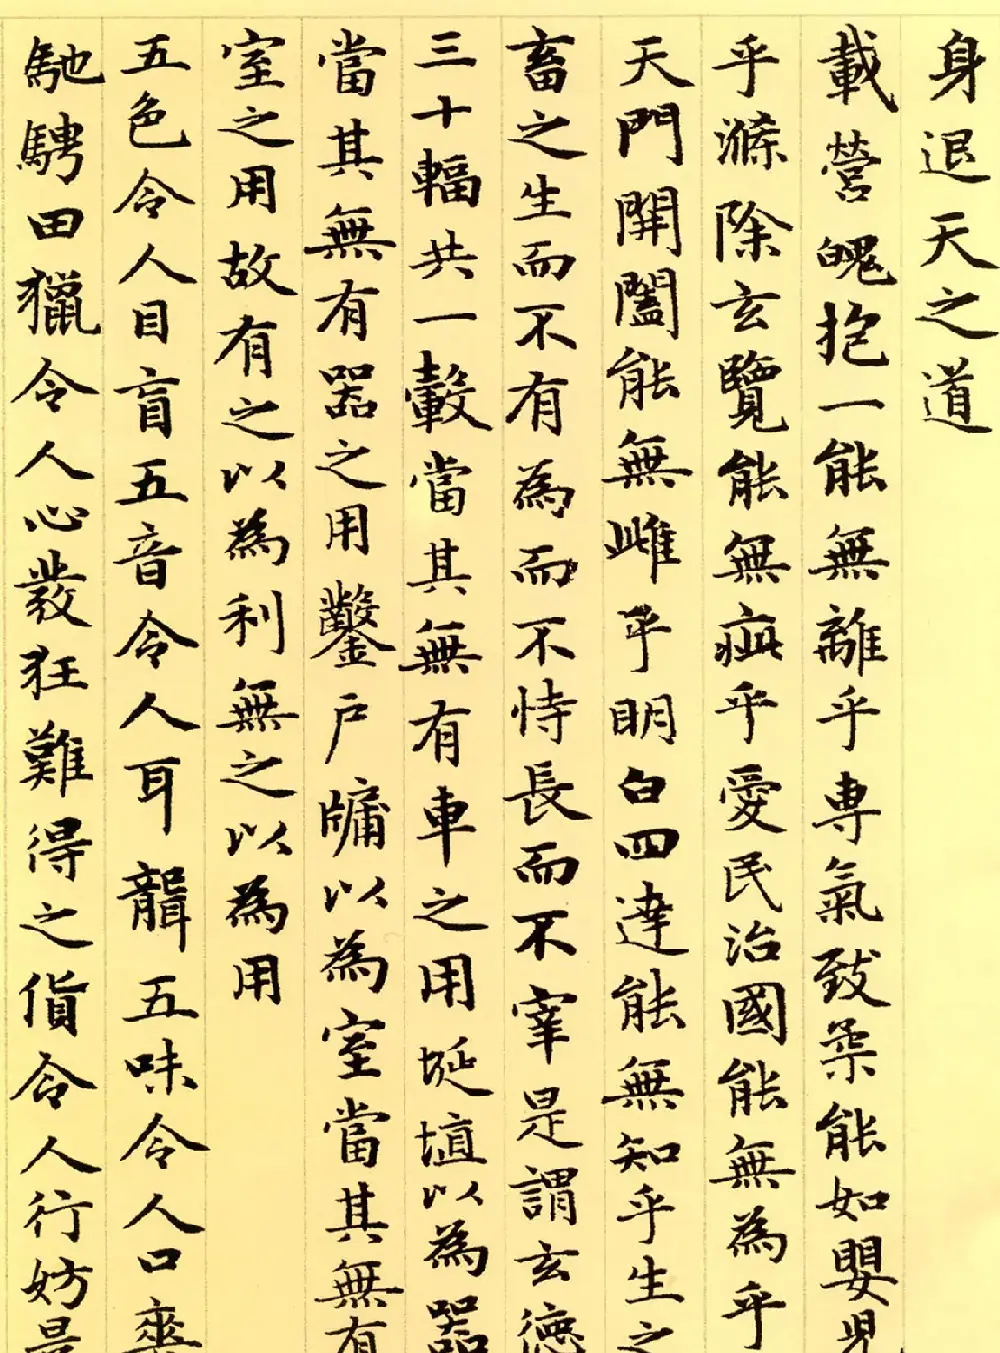 身退天之道
載營魄抱一能無離乎専氣致柔能如嬰兒
乎滌除玄覽能無疵乎愛民治國能無為乎
天門開闔能無雌乎明白四達能無知乎生之
畜之生而不有為而不恃長而不宰是謂玄德
三十輻共一轂當其無有車之用埏埴以為器
當其無有器之用鑿戶牖以為室當其無有
室之用故有之以為利無之以為用
五色令人目盲五音令人耳聾五味令人口爽
馳騁田獵令人心發狂難得之貨令人行妨是